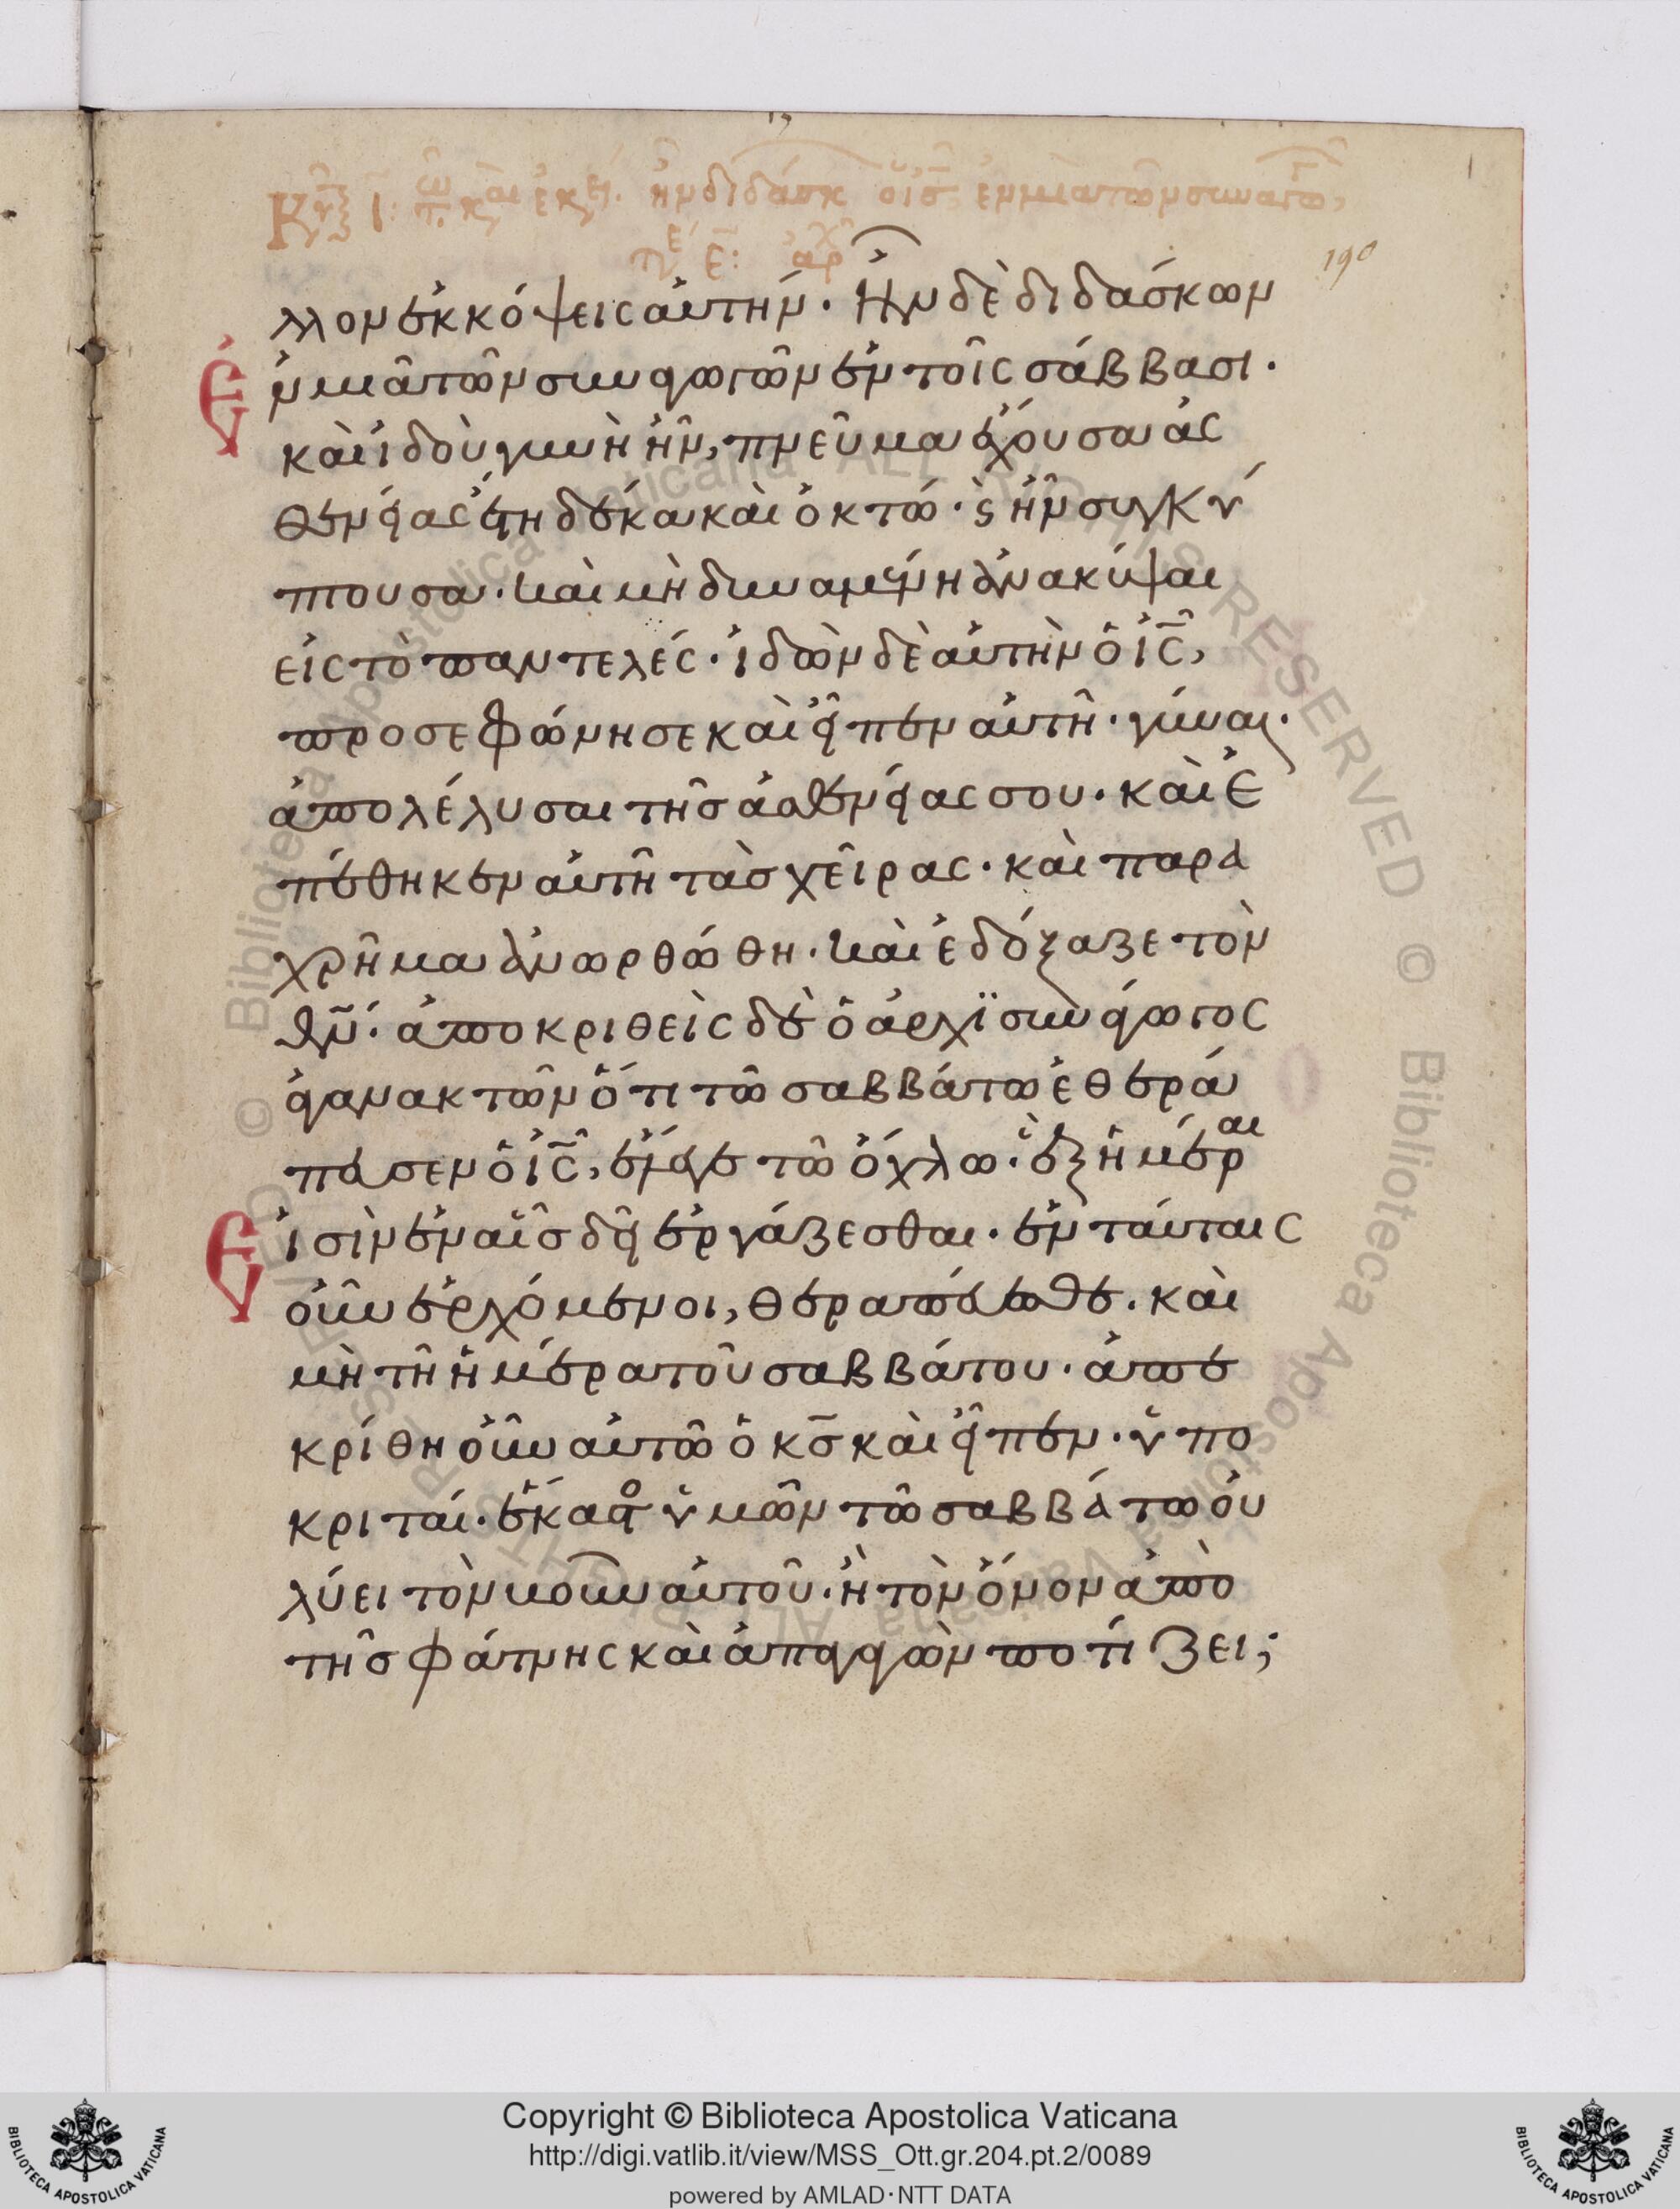 190
λλον ἐκκόψεις αὐτήν. Ἦν δὲ διδάσκων
ἐν μιᾶ τῶν συναγωγῶν ἐν τοῖς σάββασι.
καὶ ἰδοὺ γυνὴ ἦν, πνεῦμα ἔχουσα ἀσ
θενείας ἔτη δέκα καὶ ὀκτώ. ϗ ἦν συγκύ
πτουσα. καὶ μὴ δυναμένη ἀνακύψαι
εἰς τὸ παντελές. ἰδὼν δὲ αὐτὴν ὁ ἰς̅,
προσεφώνησε καὶ εἶπεν αὐτῆ. γύναι.
ἀπολέλυσαι τῆς ἀσθενείας σου. καὶ ἐ
πέθηκεν αὐτῆ τὰς χεῖρας. καὶ παρα
χρῆμα ἀνωρθώθη. καὶ ἐδόξαζε τὸν
θν̅. ἀποκριθεὶς δὲ ὁ ἀρχϊσυνάγωγος
ἀγανακτῶν ὅτι τῶ σαββάτω ἐθερά
πευσεν ὁ ἰς̅, ἔλεγε τῶ ὄχλω. ἓξ ἡμέραι
εἰσὶν ἐν αἷς δεῖ ἐργάζεσθαι. ἐν ταύταις
οὖν ἐρχόμενοι, θεραπεύεσθε. καὶ
μὴ τῆ ἡμέρα τοῦ σαββάτου. ἀπε
κρίθη οὖν αὐτῶ ὁ κς̅ καὶ εἶπεν. ὑπο
κριταί. ἕκαστος ὑμῶν τῶ σαββάτω οὐ
λύει τὸν βοῦν αὐτοῦ. ἢ τὸν ὄνον ἀπὸ
τῆς φάτνης καὶ ἀπαγαγὼν ποτίζει;
Copyright © Biblioteca Apostolica Vaticana
http://digi.vatlib.it/view/MSS_Ott.gr.204.pt.2/0089
powered by AMLAD·NTT DATA
BIBLIOTECA APOSTOLICA VATICANA
BIBLIOTECA APOSTOLICA VATICANA